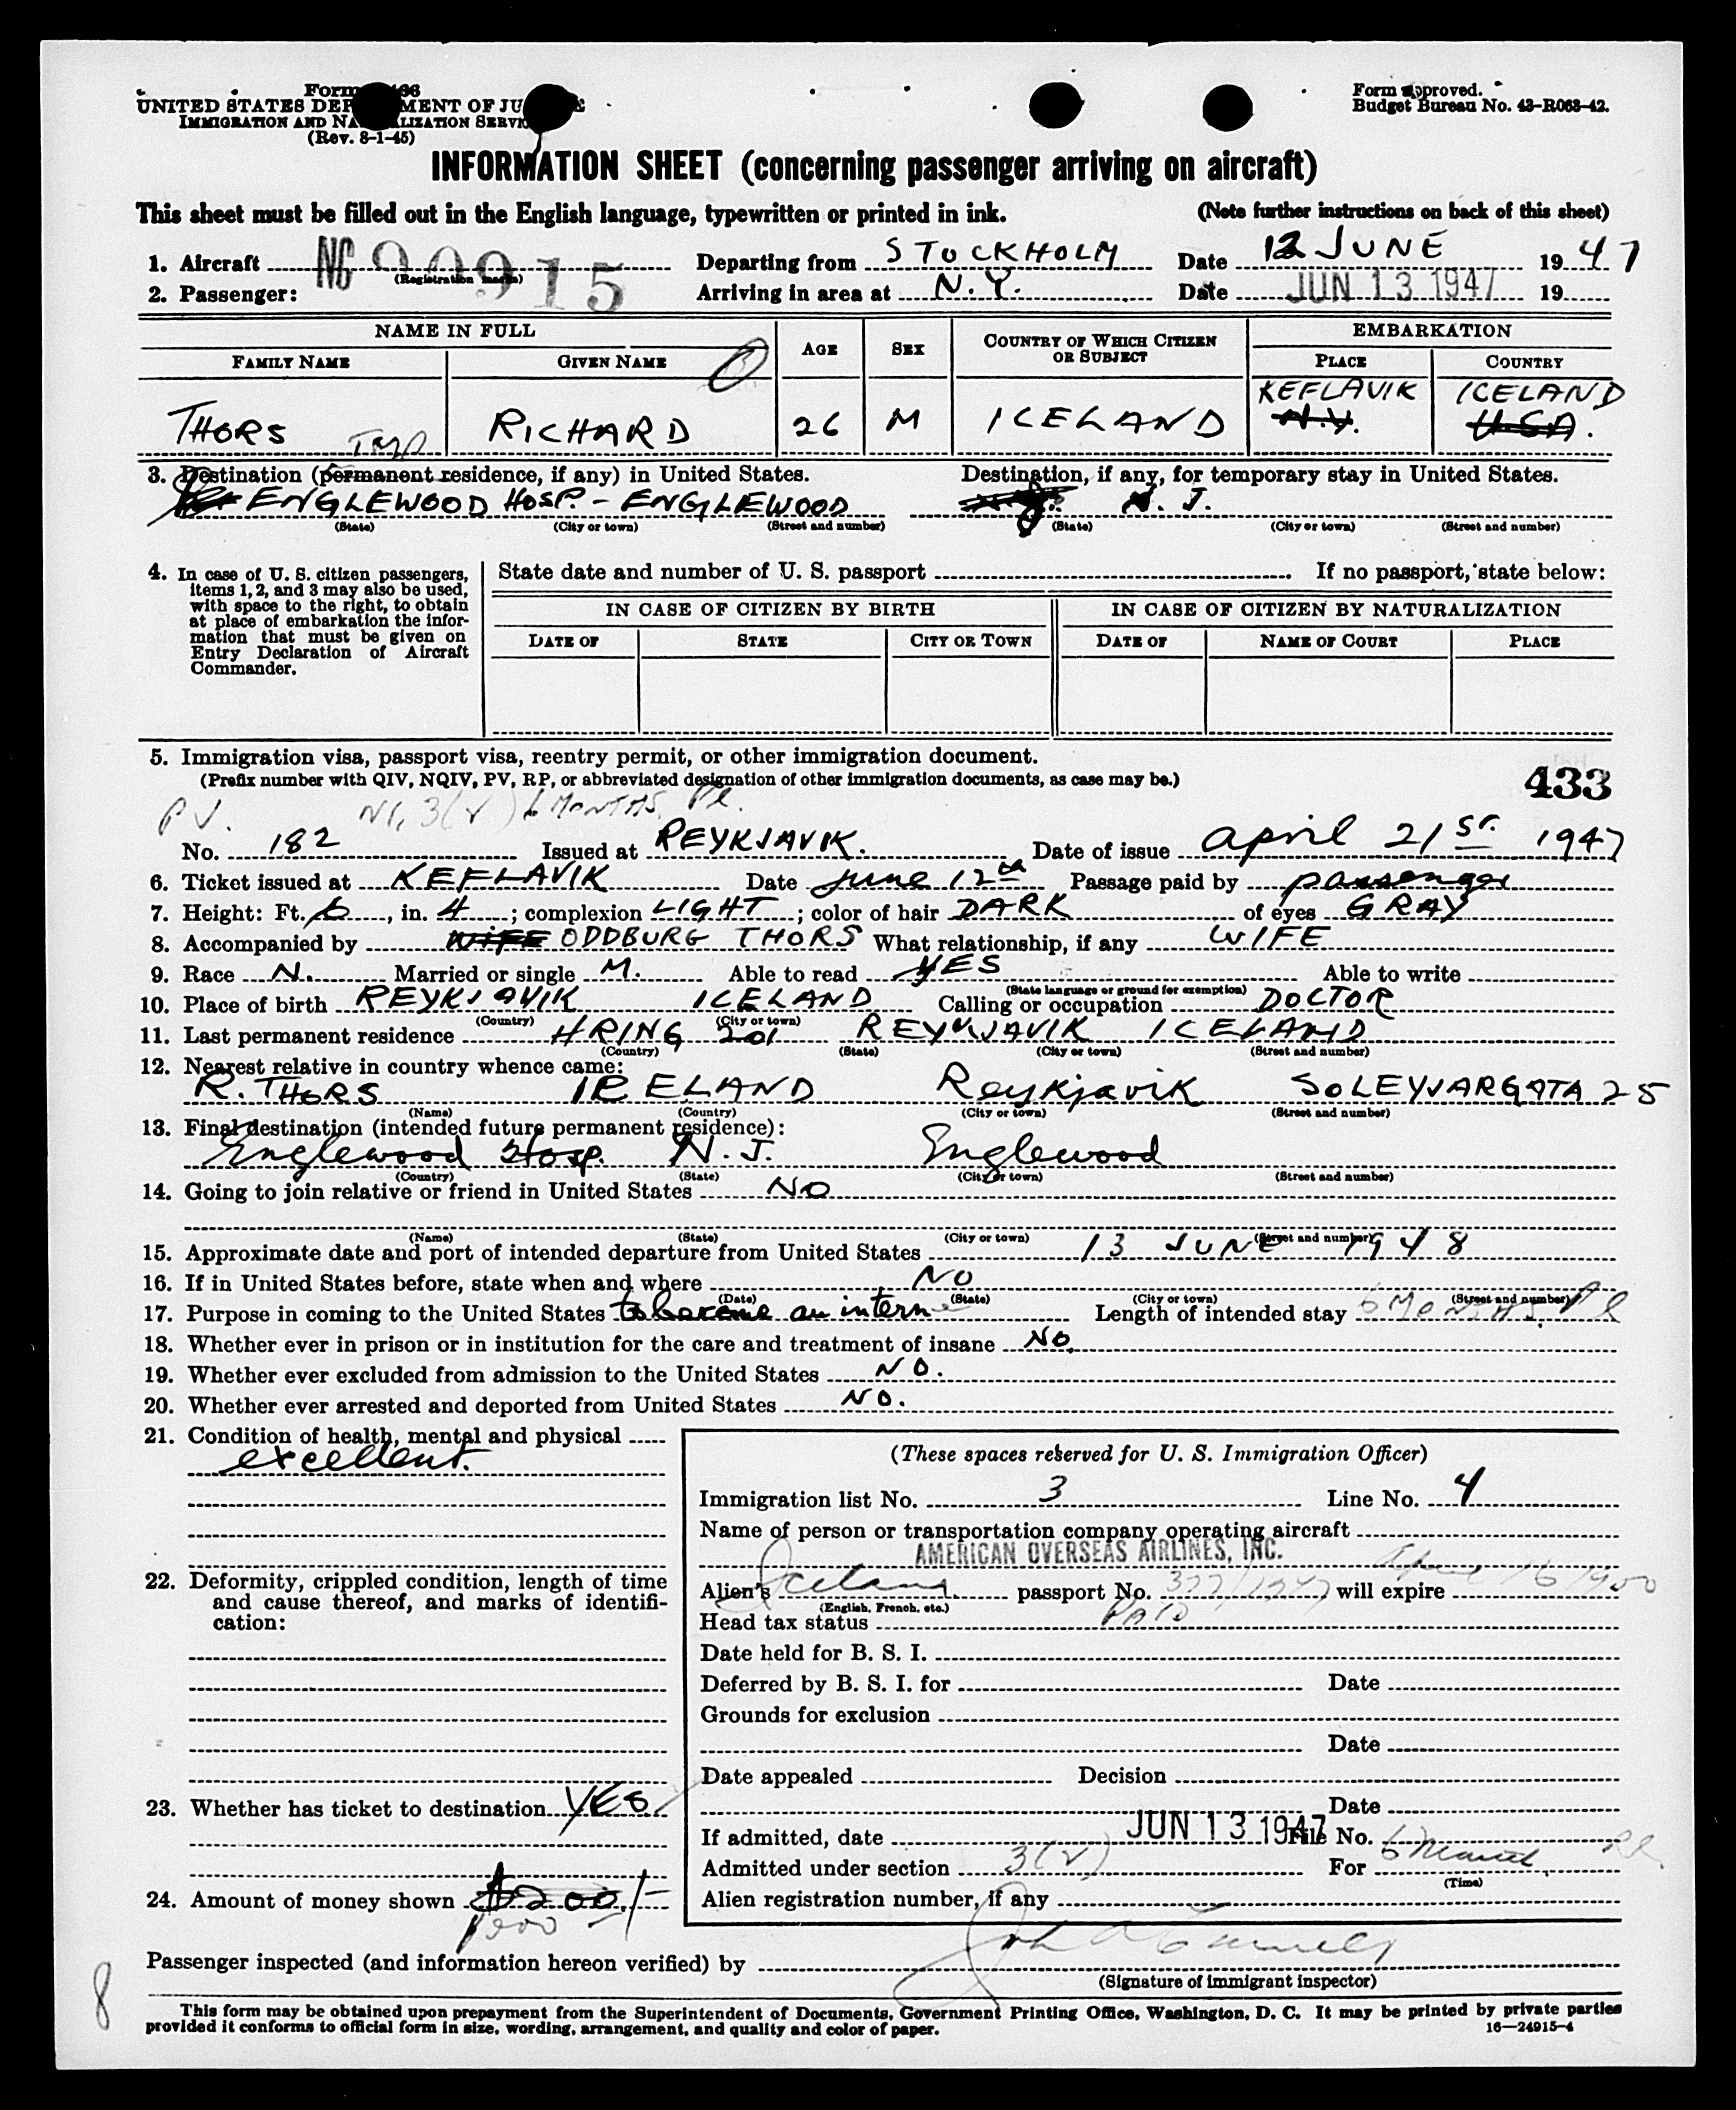 Form
UNITED STATES DEP MENT OF JU
IMMIGRATION AND NA LIZATION SERVI
(Rev. 8-1-45)
Form approved.
Budget Bureau No. 43-R063-42.
INFORMATION SHEET (concerning passenger arriving on aircraft)
This sheet must be filled out in the English language, typewritten or printed in ink. (Note further instructions on back of this sheet)
1. Aircraft NC 90915 Departing from STOCKHOLM Date 12 JUNE 1947
(Registration marks)
2. Passenger: Arriving in area at N.Y. Date JUN 13 1947 19
NAME IN FULL AGE SEX COUNTRY OF WHICH CITIZEN OR SUBJECT EMBARKATION
FAMILY NAME GIVEN NAME PLACE COUNTRY
KEFLAVIK ICELAND
THORS RICHARD 26 M ICELAND N.Y. USA.
3. Destination (permanent residence, if any) in United States. Destination, if any, for temporary stay in United States.
ENGLEWOOD HOSP. - ENGLEWOOD N. J.
(State) (City or town) (Street and number) (State) (City or town) (Street and number)
4. In case of U. S. citizen passengers, items 1, 2, and 3 may also be used, with space to the right, to obtain at place of embarkation the information that must be given on Entry Declaration of Aircraft Commander.
State date and number of U. S. passport If no passport, state below:
IN CASE OF CITIZEN BY BIRTH IN CASE OF CITIZEN BY NATURALIZATION
DATE OF STATE CITY OR TOWN DATE OF NAME OF COURT PLACE
5. Immigration visa, passport visa, reentry permit, or other immigration document.
(Prefix number with QIV, NQIV, PV, RP, or abbreviated designation of other immigration documents, as case may be.) 433
PV. 3(2) 6 MONTHS
No. 182 Issued at REYKJAVIK. Date of issue April 21st 1947
6. Ticket issued at KEFLAVIK Date June 12th Passage paid by passenger
7. Height: Ft. 6, in. 4; complexion LIGHT; color of hair DARK of eyes GRAY
8. Accompanied by WIFE ODDBURG THORS What relationship, if any WIFE
9. Race N. Married or single M. Able to read YES Able to write
(State language or ground for exemption)
10. Place of birth REYKJAVIK ICELAND Calling or occupation DOCTOR
(Country) (City or town)
11. Last permanent residence HRING 201 REYKJAVIK ICELAND
(Country) (State) (City or town) (Street and number)
12. Nearest relative in country whence came:
R. THORS ICELAND Reykjavik SOLEYJARGATA 25
(Name) (Country) (City or town) (Street and number)
13. Final destination (intended future permanent residence):
Englewood Hosp. N. J. Englewood
(Country) (State) (City or town) (Street and number)
14. Going to join relative or friend in United States NO
(Name) (State) (City or town) (Street and number)
15. Approximate date and port of intended departure from United States 13 JUNE 1948
16. If in United States before, state when and where NO
(Date) (State) (City or town) (Street and number)
17. Purpose in coming to the United States to become an interne Length of intended stay 6 MONTHS
18. Whether ever in prison or in institution for the care and treatment of insane NO.
19. Whether ever excluded from admission to the United States NO.
20. Whether ever arrested and deported from United States NO.
21. Condition of health, mental and physical
excellent.
22. Deformity, crippled condition, length of time and cause thereof, and marks of identification:
23. Whether has ticket to destination YES
24. Amount of money shown $200/-
(These spaces reserved for U. S. Immigration Officer)
Immigration list No. 3 Line No. 4
Name of person or transportation company operating aircraft
AMERICAN OVERSEAS AIRLINES, INC.
Alien's Iceland passport No. 377/1947 will expire April 16 1950
(English, French, etc.)
Head tax status PAID
Date held for B. S. I.
Deferred by B. S. I. for Date
Grounds for exclusion
Date
Date appealed Decision
Date
If admitted, date JUN 13 1947 File No.
Admitted under section 3(2) For 6 months
(Time)
Alien registration number, if any
Passenger inspected (and information hereon verified) by
(Signature of immigrant inspector)
8
This form may be obtained upon prepayment from the Superintendent of Documents, Government Printing Office, Washington, D. C. It may be printed by private parties
provided it conforms to official form in size, wording, arrangement, and quality and color of paper. 16—24915-4